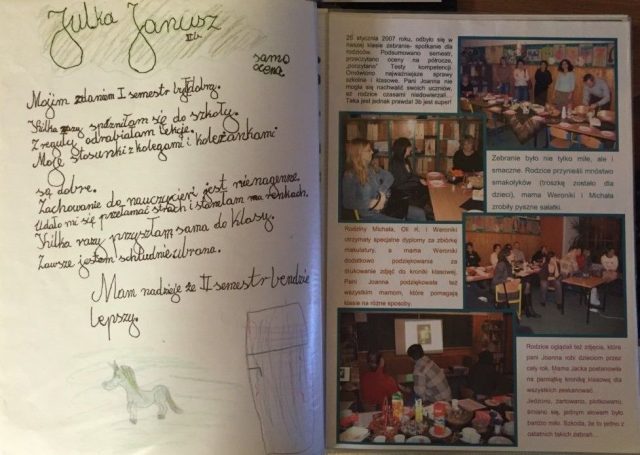 Julka Janusz
III b
samo
ocena
Moim zdaniem I semestr był dobry.
Kilka razy spóźniłam się do szkoły.
Z reguły odrabiałam lekcje.
Moje stosunki z kolegami i koleżankami
są dobre.
Zachowanie do nauczycieli jest nienagenne
Udało mi się przełamać strach i stanęłam na rękach.
Kilka razy przyszłam sama do klasy.
Zawsze jestem schludnie ubrana.
Mam nadzieje że II semestr bendzie
lepszy.
25 stycznia 2007 roku, odbyło się w
naszej klasie zebranie- spotkanie dla
rodziców. Podsumowano semestr,
przeczytano oceny na półrocze,
„porozdano” Testy kompetencji.
Omówiono najważniejsze sprawy
szkolne i klasowe. Pani Joanna nie
mogła się nachwalić swoich uczniów,
aż rodzice czasami niedowierzali...
Taka jest jednak prawda! 3b jest super!
Zebranie było nie tylko miłe, ale i
smaczne. Rodzice przynieśli mnóstwo
smakołyków (troszkę zostało dla
dzieci), mama Weroniki i Michała
zrobiły pyszne sałatki.
Rodziny Michała, Oli K. i Weroniki
otrzymały specjalne dyplomy za zbiórkę
makulatury, a mama Weroniki
dodatkowo podziękowania za
drukowanie zdjęć do kroniki klasowej.
Pani Joanna podziękowała też
wszystkim mamom, które pomagają
klasie na różne sposoby.
Rodzice oglądali też zdjęcia, które
pani Joanna robi dzieciom przez
cały rok. Mama Jacka postanowiła
na pamiątkę kronikę klasową dla
wszystkich zeskanować...
Jedzono, żartowano, plotkowano,
śmiano się, jednym słowem było
bardzo miło. Szkoda, że to jedno z
ostatnich takich zebrań...